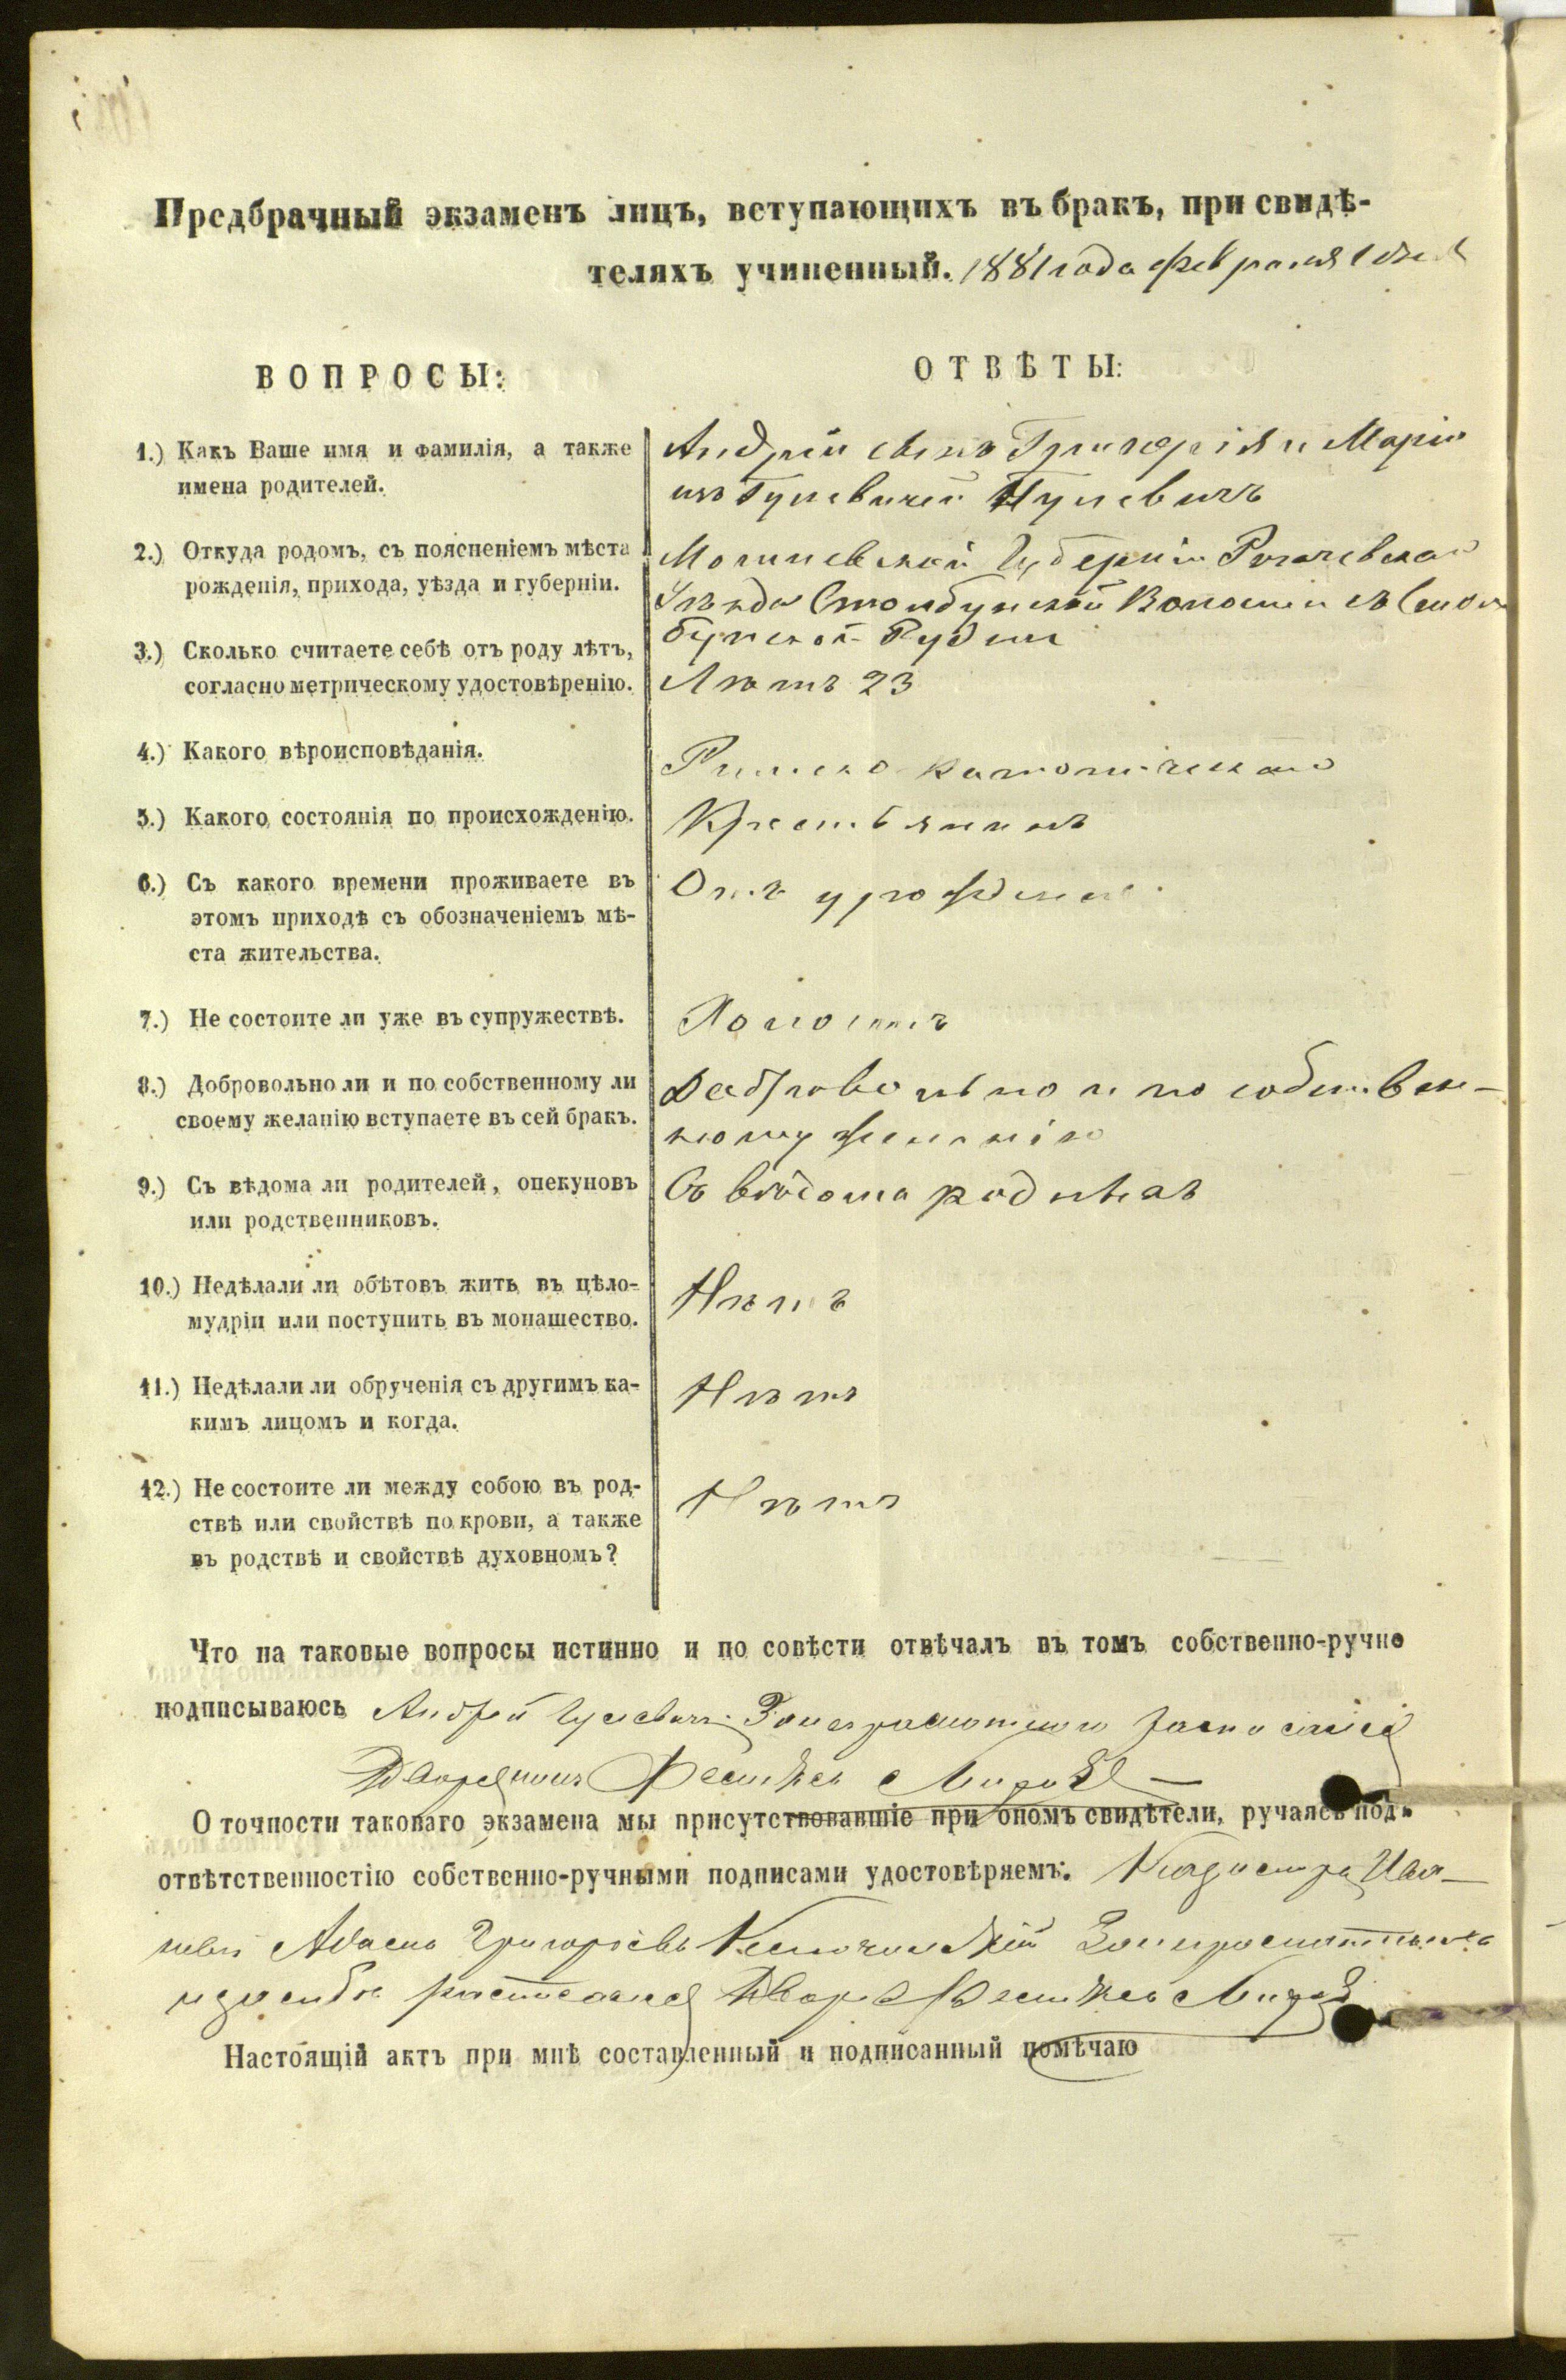 Предбрачный экзаменъ лицъ, вступающихъ въ бракъ, при свидѣ-
теляхъ учиненный. 1881 года февраля 1 дня
ВОПРОСЫ:
ОТВѢТЫ:
1.) Какъ Ваше имя и фамилія, а также
имена родителей.
Андрей сынъ Григорія и Маріи
изъ Гулевичей Гулевичъ
2.) Откуда родомъ, съ поясненіемъ мѣста
рожденія, прихода, уѣзда и губерніи.
Могилевской Губерніи Рогачевскаго
Уѣзда Столбунской Волости с. Стол
бунской Рудни
3.) Сколько считаете себѣ отъ роду лѣтъ,
согласно метрическому удостовѣренію.
Лѣтъ 23
4.) Какого вѣроисповѣданія.
Римско-католическаго
5.) Какого состоянія по происхожденію.
Крестьянинъ
6.) Съ какого времени проживаете въ
этомъ приходѣ съ обозначеніемъ мѣ-
ста жительства.
Отъ урожденія
7.) Не состоите ли уже въ супружествѣ.
Холостъ
8.) Добровольно ли и по собственному ли
своему желанію вступаете въ сей бракъ.
Добровольно и по собствен-
ному желанію
9.) Съ вѣдома ли родителей, опекуновъ
или родственниковъ.
Съ вѣдома
10.) Недѣлали ли обѣтовъ жить въ цѣло-
мудріи или поступить въ монашество.
Нѣтъ
11.) Недѣлали ли обрученія съ другимъ ка-
кимъ лицомъ и когда.
Нѣтъ
12.) Не состоите ли между собою въ род-
ствѣ или свойствѣ по крови, а также
въ родствѣ и свойствѣ духовномъ?
Нѣтъ
Что на таковые вопросы истинно и по совѣсти отвѣчалъ въ томъ собственно-ручно
подписываюсь Андрей Гулевичъ За неграмотнаго росписался
Дворянинъ Феликсъ
О точности таковаго экзамена мы присутствовавшіе при ономъ свидѣтели, ручаясь под-
отвѣтственностію собственно-ручными подписами удостовѣряемъ:
Адамъ Григорьевъ За неграмотныхъ
росписался Двор. Феликсъ
Настоящій актъ при мнѣ составленный и подписанный помѣчаю